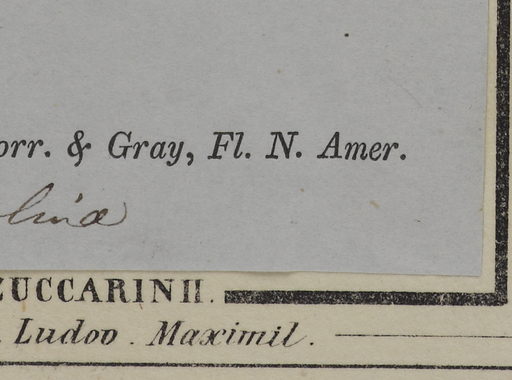 orr. & Gray, Fl. N. Amer.
lina
ZUCCARINII.
. Ludov. Maximil.